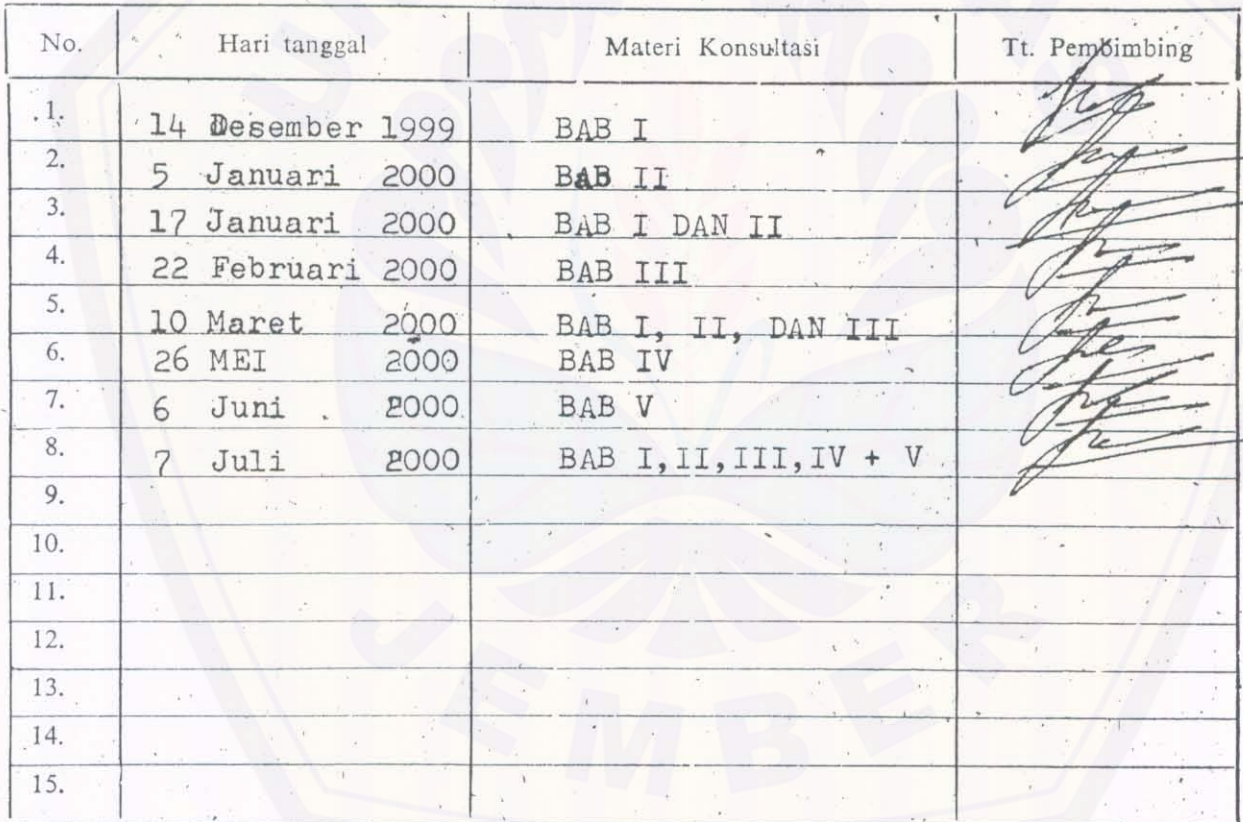 No. Hari tanggal Materi Konsultasi Tt. Pembimbing
1. 14 Desember 1999 BAB I
2. 5 Januari 2000 BAB II
3. 17 Januari 2000 BAB I DAN II
4. 22 Februari 2000 BAB III
5. 10 Maret 2000 BAB I, II, DAN III
6. 26 MEI 2000 BAB IV
7. 6 Juni 2000 BAB V
8. 7 Juli 2000 BAB I,II,III,IV + V
9.
10.
11.
12.
13.
14.
15.
JEMBER